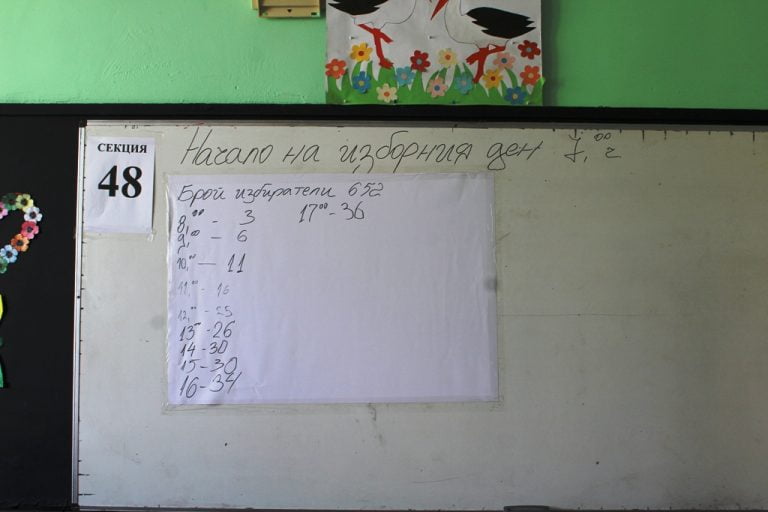 СЕКЦИЯ
48
Начало на изборния ден 7,00 ч
Брой избиратели 652
8,00 - 3
9,00 - 6
10,00 - 11
11,00 - 16
12,00 - 25
13 00 - 26
14 - 30
15 - 30
16 - 34
17 00 - 36